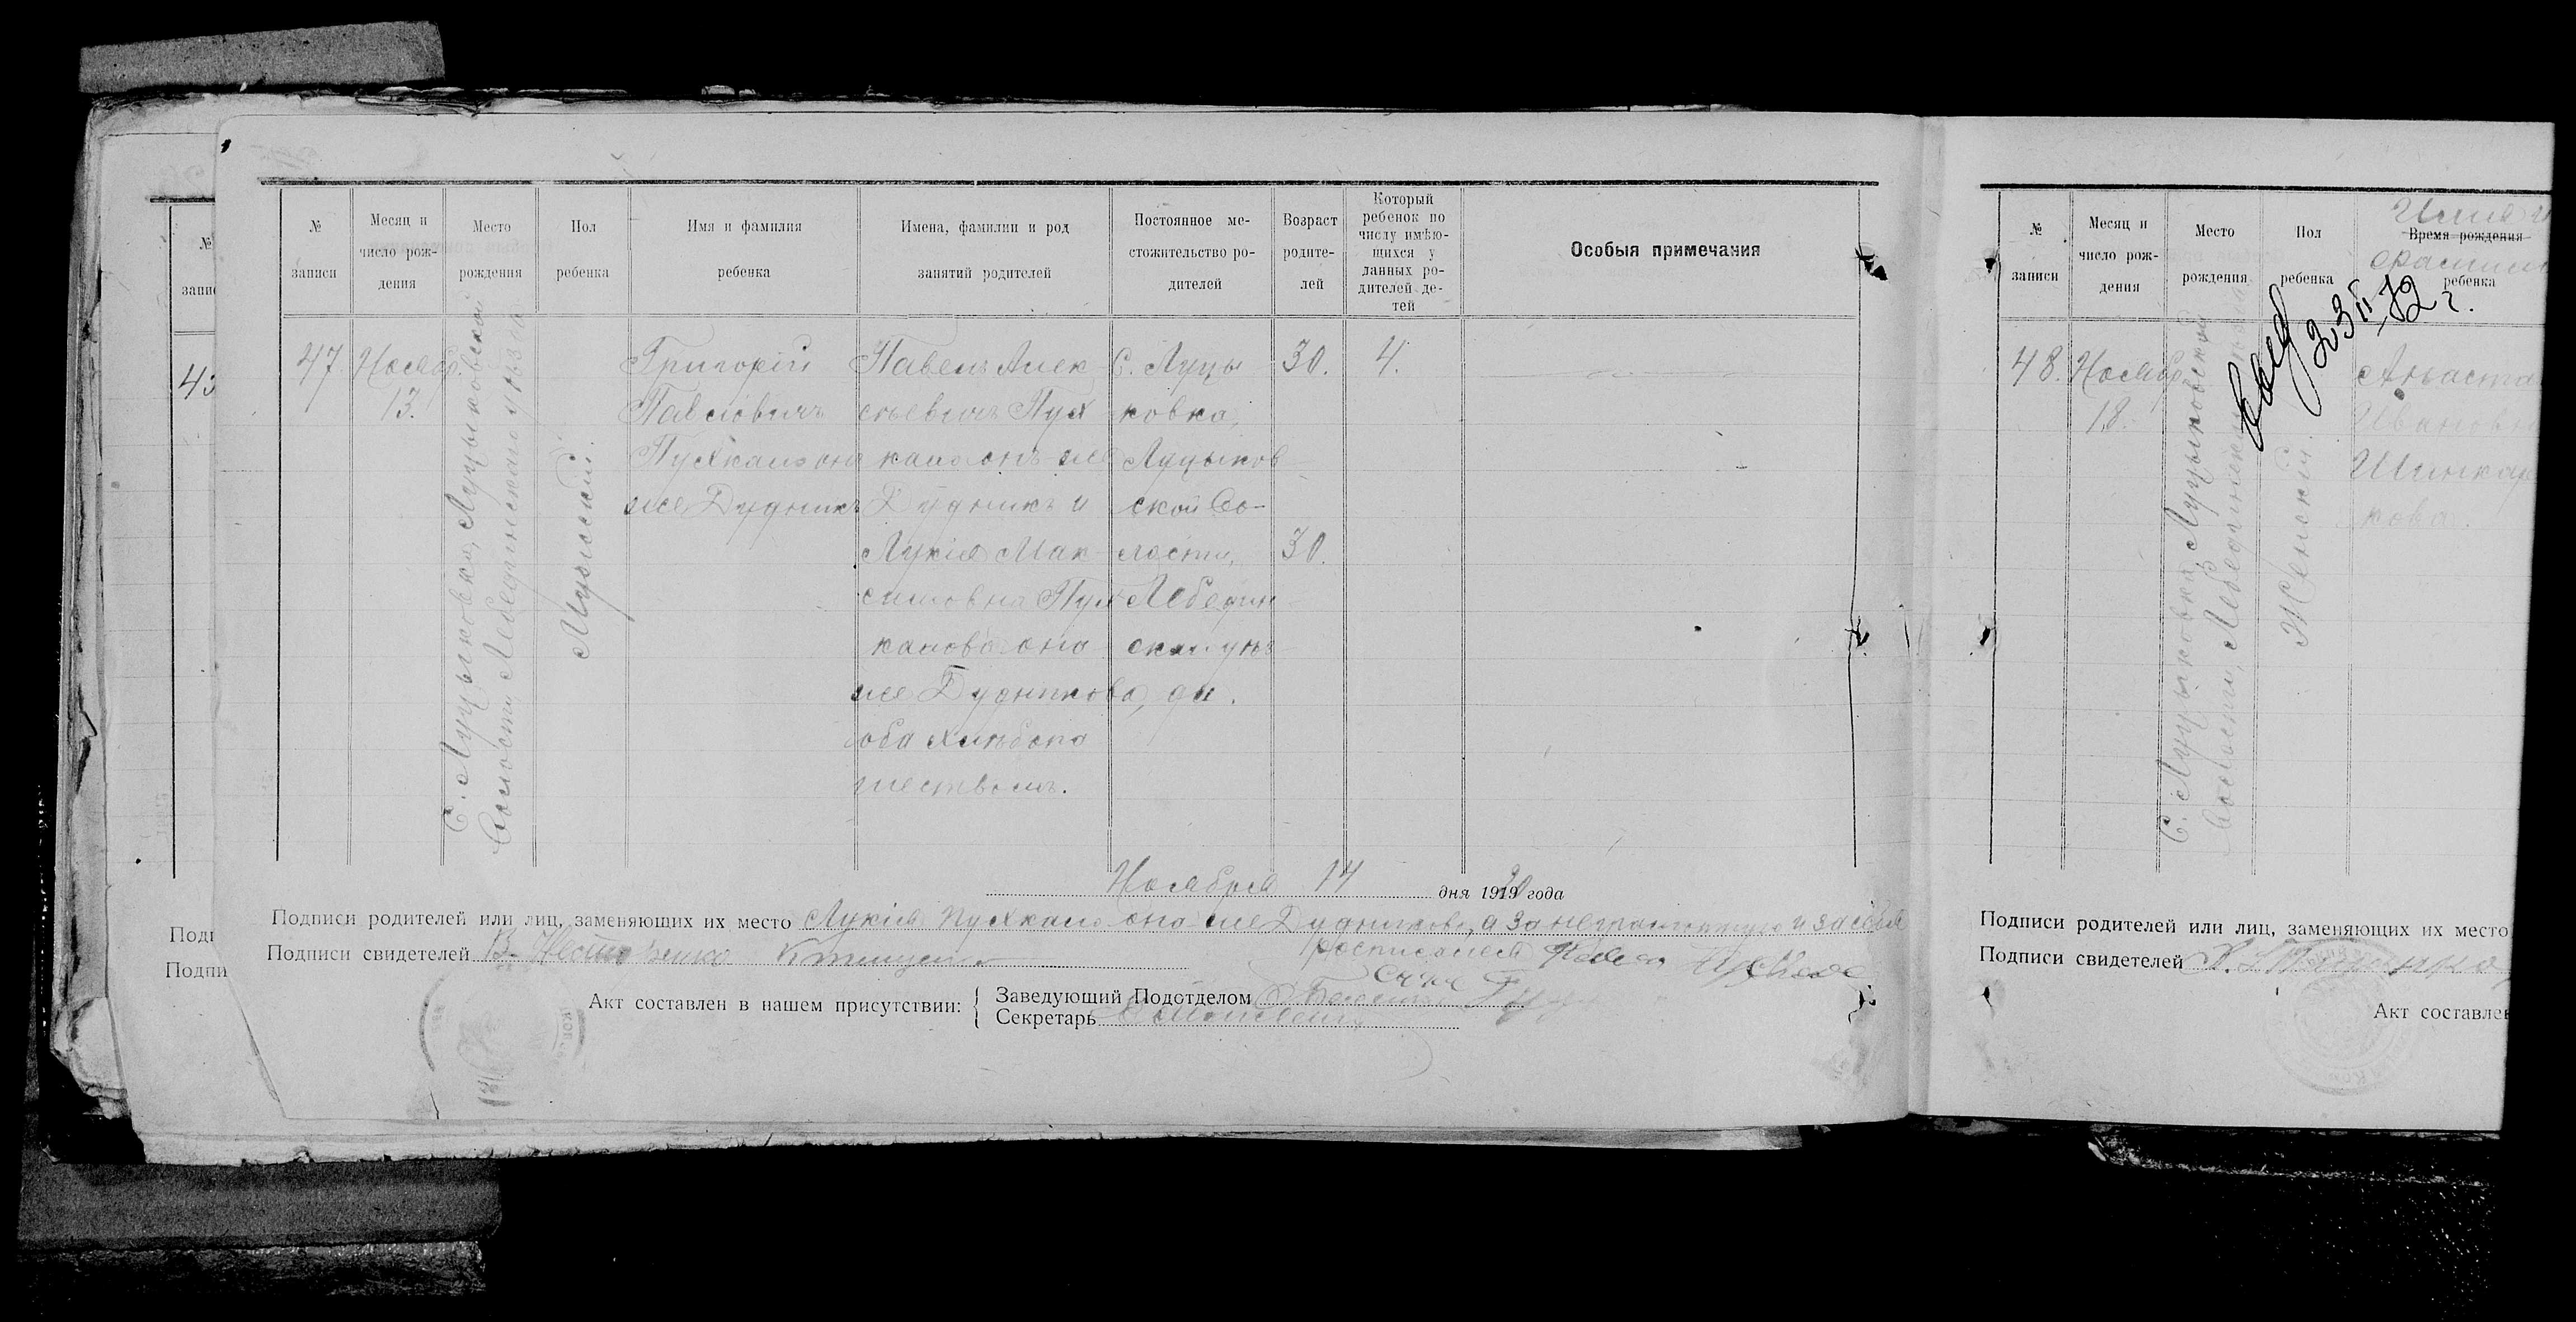 № записи
Месяц и число рождения
Место рождения
Пол ребенка
Имя и фамилия ребенка
Имена, фамилии и род занятий родителей
Постоянное местожительство родителей
Возраст родителей
Который ребенок по числу имѣющихся у данных родителей детей
Особыя примечания
47.
Ноябр.
13.
С. Луцыковка, Луцыковской
Волости, Лебединскаго уѣзда
Мужской.
Григорій
Павловичъ
Пухкало онъ
же Дудникъ
Павелъ Алек
сѣевичъ Пух
кало онъ же
Дудникъ и
Лукія Мак
симовна Пух
калова она
же Дудникова,
оба хлѣбопа
шествомъ.
С. Луцы
ковка,
Луцыков
ской Во-
лости,
Лебедин
скаго уѣз
да.
30.
30.
4.
Ноября 14 дня 1920 года
Подписи родителей или лиц, заменяющих их место Лукія Пухкало она же Дудникова, а за неграмотную и за себя
росписался Павел
Подписи свидетелей
Акт составлен в нашем присутствии:
Заведующий Подотделом
Секретарь
№ записи
Месяц и число рождения
Место рождения
Пол ребенка
Время рождения
ребенка
23 II 72 г.
48.
Ноябр.
18.
С. Луцыковка, Луцыковской
Волости, Лебединскаго уѣзда
Женский.
Анаста
Иванов
Шинкар
кова.
Подписи родителей или лиц, заменяющих их место
Подписи свидетелей
Акт составлен
№
запи
43
Подп
Подпи